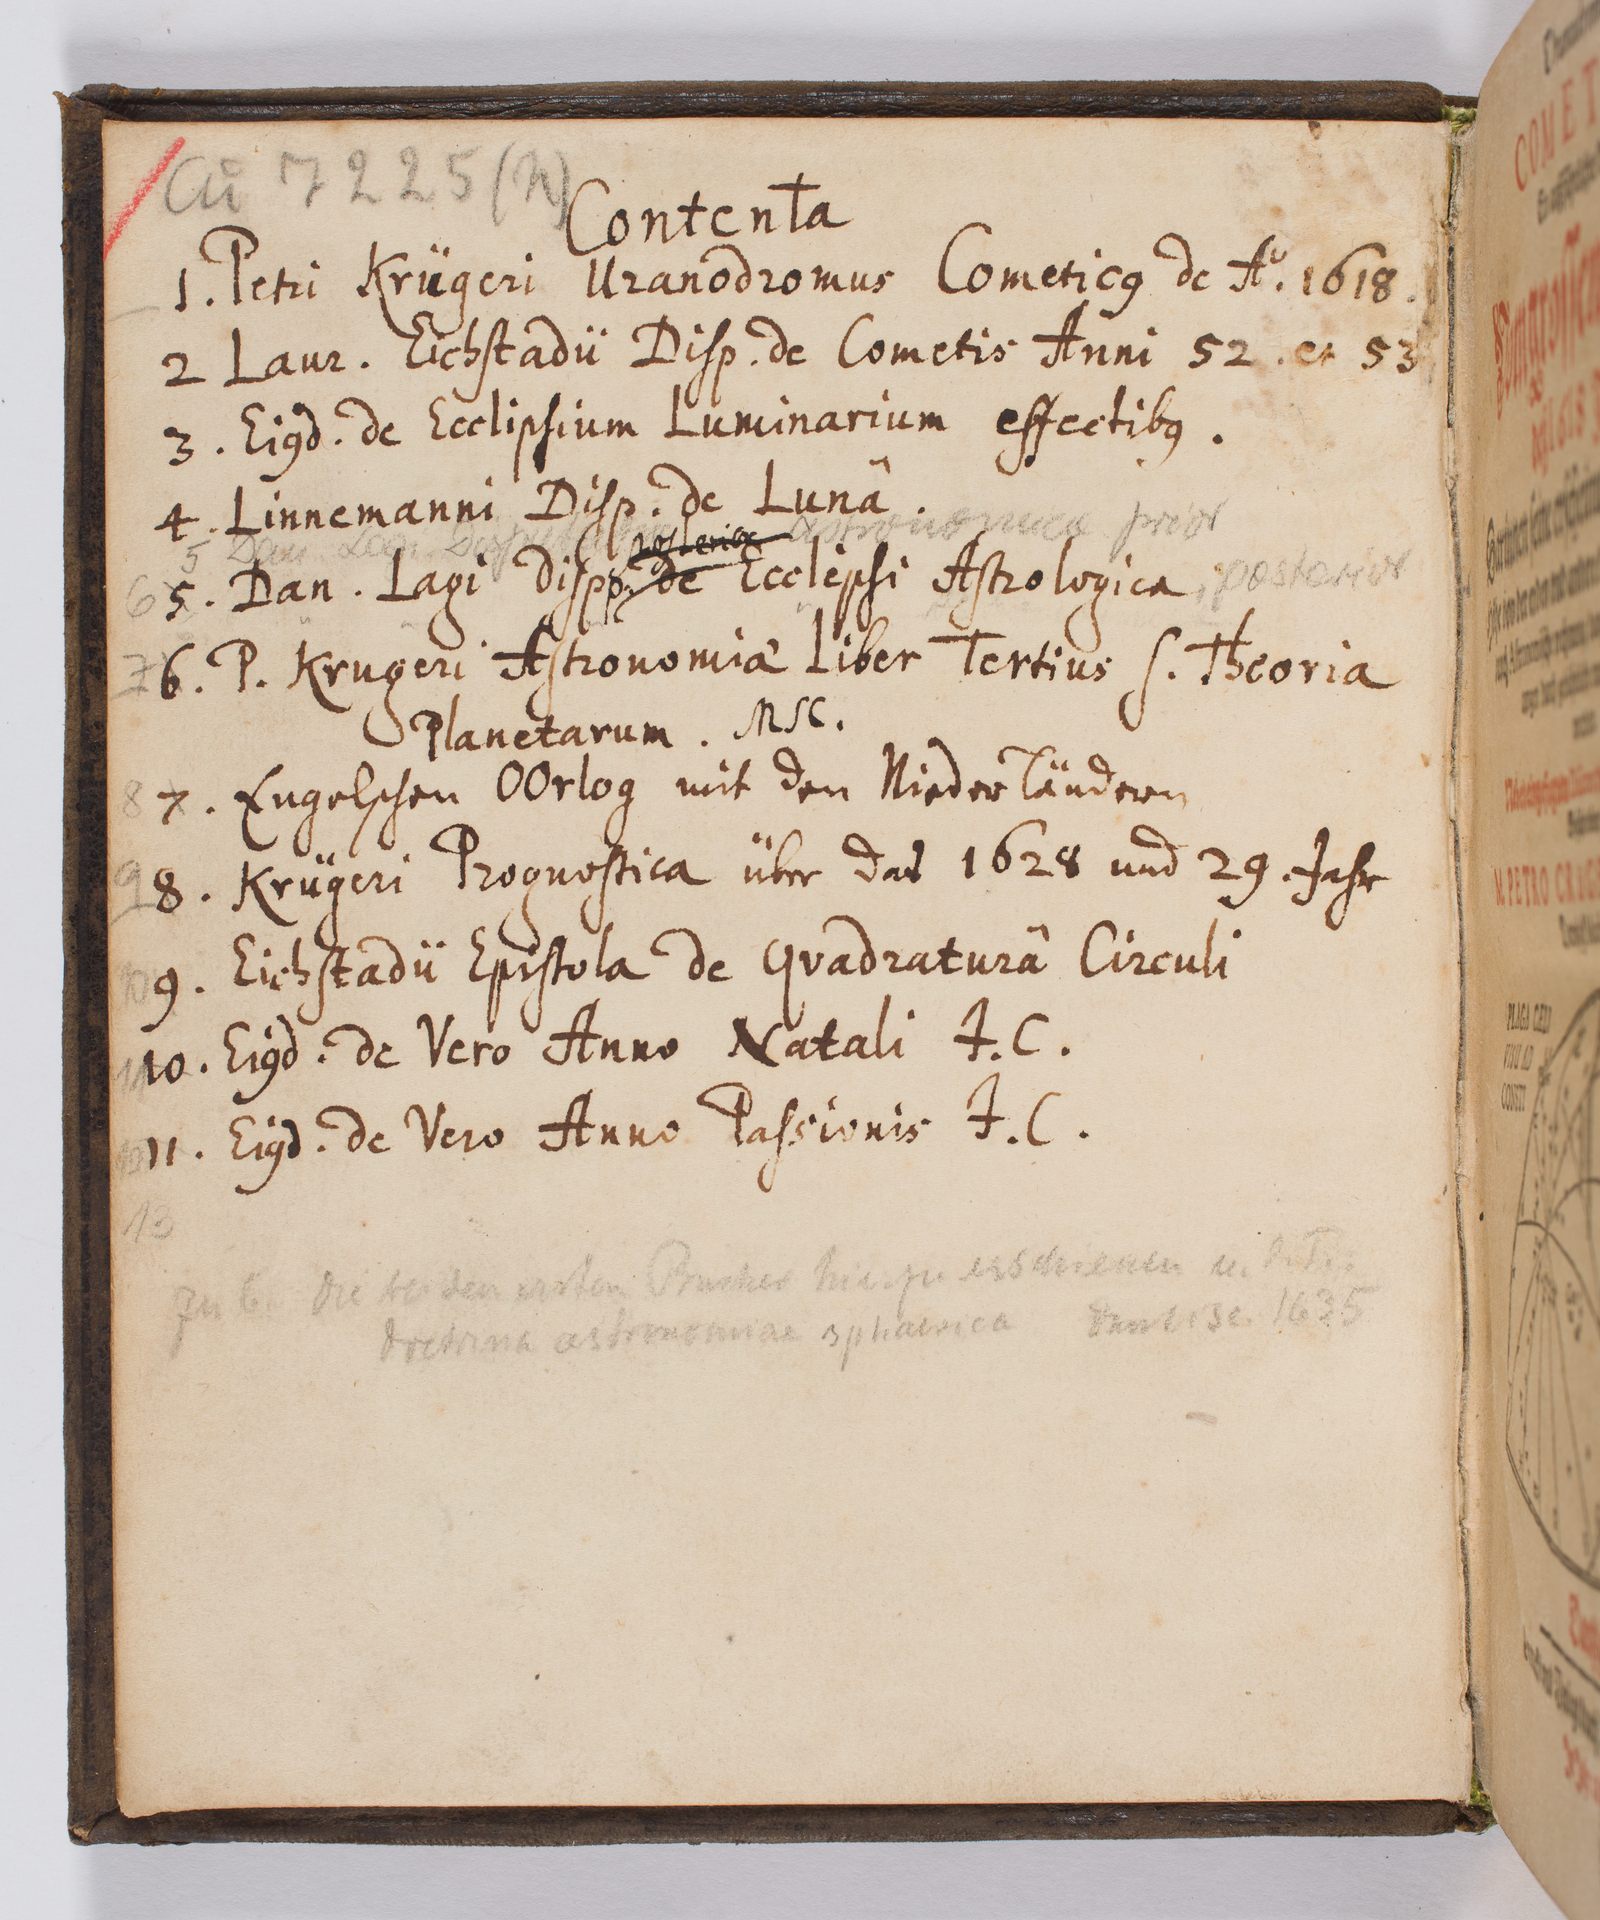 Cü 7225 (R)
Contenta
1. Petri Krügeri Uranodromus Cometicꝰ de Aº. 1618.
2 Laur. Eichstadii Disp. de Cometis Anni 52. et 53
3. Eiꝰd. de Ecclipsium Luminarium effectibꝰ.
4. Linnemanni Disp. de Lunâ.
5 Dan. Lagi Disputatio astronomica prior
posterior
6 5. Dan. Lagi dispp. de Ecclipsi Astrologica, posterior
7 6. P. Krugeri Astronomiæ Liber Tertius s. Theoria
Planetarum. MSC.
8 7. Engelschen OOrlog mit den Niederländern
9 8. Krügeri Prognostica über das 1628 und 29. Jahr
10 9. Eichstadii Epistola de Qvadraturâ Circuli
11 10. Eiꝰd. de Vero Anno Natali J.C.
12 11. Eiꝰd. de Vero Anno Passionis J.C.
13
zu 6. Die beiden ersten Bücher hierzu erschienen u. d. T.:
doctrina astronomiae sphaerica Dantisc. 1635
COMET
M. PETRO CRÜGE
PLAGA CELI